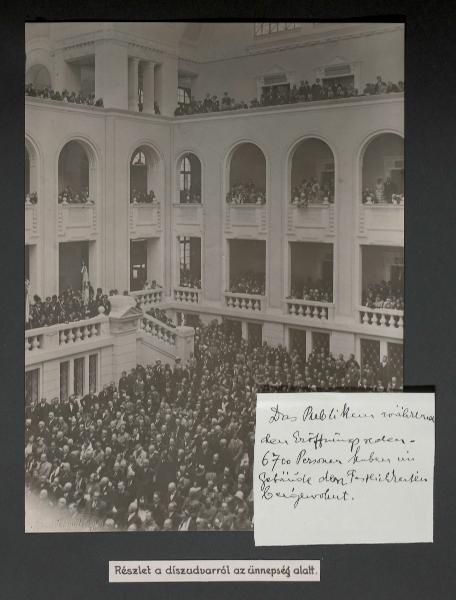 Das Publikum während
den Eröffnungsreden -
6700 Personen haben im
Gebäude den Festlichkeiten
beigewohnt.
Részlet a díszudvarról az ünnepség alatt.